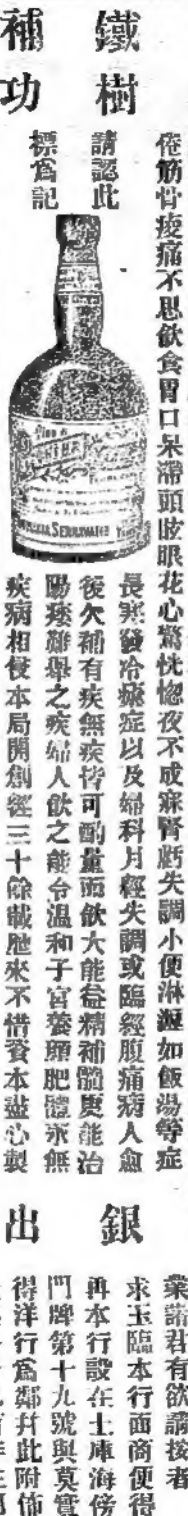 鐵樹
補功
倦筋骨痠痛不思飲食胃口呆滯頭眩眼花心驚恍惚夜不成寐腎虧失調小便淋漓如飯湯等症
請認此
標爲記
CHINA
SERRAVALLO
長寒發冷瘵症以及婦科月經失調或臨經腹痛病人愈
後欠補有疾無疾皆可酌量而飲大能益精補髓更能治
陽痿難舉之疾婦人飲之能令溫和子宮養顏肥體永無
疾病相侵本局開創經三十餘載歷來不惜資本盡心製
銀
出
業諸君有欲講接者
求玉臨本行面商便得
再本行設在土庫海傍
門牌第十九號與莫實
得洋行爲鄰幷此附佈